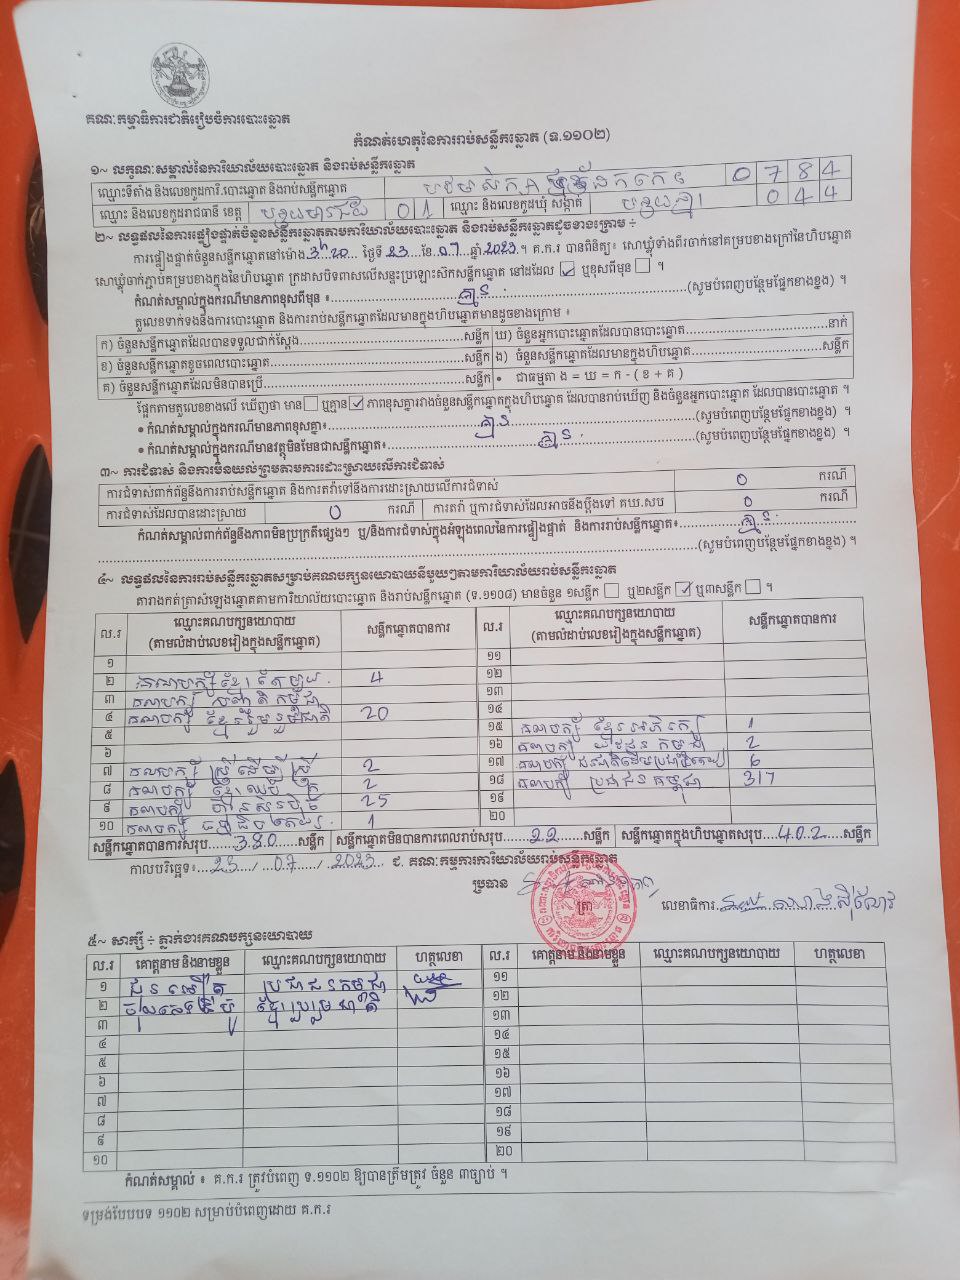 គណៈកម្មាធិការជាតិរៀបចំការបោះឆ្នោត
កំណត់ហេតុនៃការរាប់សន្លឹកឆ្នោត (ទ.១១០២)
១~ លក្ខណៈសម្គាល់នៃការិយាល័យបោះឆ្នោត និងរាប់សន្លឹកឆ្នោត
ឈ្មោះទីតាំង និងលេខកូដការិ.បោះឆ្នោត និងរាប់សន្លឹកឆ្នោត 0 7 8 4
ឈ្មោះ និងលេខកូដរាជធានី ខេត្ត បន្ទាយមានជ័យ 0 1 ឈ្មោះ និងលេខកូដឃុំ សង្កាត់ 0 4 4
២~ លទ្ធផលនៃការផ្ទៀងផ្ទាត់ចំនួនសន្លឹកឆ្នោតតាមការិយាល័យបោះឆ្នោត និងរាប់សន្លឹកឆ្នោតដូចខាងក្រោម ÷
ការផ្ទៀងផ្ទាត់ចំនួនសន្លឹកឆ្នោតនៅម៉ោង 3h 20 ថ្ងៃទី 23 ខែ 07 ឆ្នាំ 2023 ។ គ.ក.រ បានពិនិត្យ៖ សោឃ្លុំទាំងពីរចាក់នៅគម្របខាងក្រៅនៃហិបឆ្នោត
សោឃ្លុំចាក់ភ្ជាប់គម្របខាងក្នុងនៃហិបឆ្នោត ក្រដាសបិទពាសលើសន្ទះប្រឡោះសិកសន្លឹកឆ្នោត នៅដដែល ☑ ឬខុសពីមុន ☐ ។
កំណត់សម្គាល់ក្នុងករណីមានភាពខុសពីមុន ៖ គ្មាន (សូមបំពេញបន្ថែមផ្នែកខាងខ្នង) ។
តួលេខទាក់ទងនឹងការបោះឆ្នោត និងការរាប់សន្លឹកឆ្នោតដែលមានក្នុងហិបឆ្នោតមានដូចខាងក្រោម ៖
ក) ចំនួនសន្លឹកឆ្នោតដែលបានទទួលជាក់ស្តែង សន្លឹក ឃ) ចំនួនអ្នកបោះឆ្នោតដែលបានបោះឆ្នោត នាក់
ខ) ចំនួនសន្លឹកឆ្នោតខូចពេលបោះឆ្នោត សន្លឹក ង) ចំនួនសន្លឹកឆ្នោតដែលមានក្នុងហិបឆ្នោត សន្លឹក
គ) ចំនួនសន្លឹកឆ្នោតដែលមិនបានប្រើ សន្លឹក • ជាធម្មតា ង = ឃ = ក - ( ខ + គ )
ផ្អែកតាមតួលេខខាងលើ ឃើញថា មាន ☐ ឬគ្មាន ☑ ភាពខុសគ្នារវាងចំនួនសន្លឹកឆ្នោតក្នុងហិបឆ្នោត ដែលបានរាប់ឃើញ និងចំនួនអ្នកបោះឆ្នោត ដែលបានបោះឆ្នោត ។
• កំណត់សម្គាល់ក្នុងករណីមានភាពខុសគ្នា៖ គ្មាន (សូមបំពេញបន្ថែមផ្នែកខាងខ្នង) ។
• កំណត់សម្គាល់ក្នុងករណីមានវត្ថុមិនមែនជាសន្លឹកឆ្នោត៖ គ្មាន (សូមបំពេញបន្ថែមផ្នែកខាងខ្នង) ។
៣~ ការជំទាស់ និងការមិនយល់ព្រមតាមការដោះស្រាយលើការជំទាស់
ការជំទាស់ពាក់ព័ន្ធនឹងការរាប់សន្លឹកឆ្នោត និងការតវ៉ាទៅនឹងការដោះស្រាយលើការជំទាស់ 0 ករណី
ការជំទាស់ដែលបានដោះស្រាយ 0 ករណី ការតវ៉ា ឬការជំទាស់ដែលអាចនឹងប្តឹងទៅ គឃ.សប 0 ករណី
កំណត់សម្គាល់ពាក់ព័ន្ធនឹងភាពមិនប្រក្រតីផ្សេងៗ ឬ/និងការជំទាស់ក្នុងអំឡុងពេលនៃការផ្ទៀងផ្ទាត់ និងការរាប់សន្លឹកឆ្នោត៖ គ្មាន
(សូមបំពេញបន្ថែមផ្នែកខាងខ្នង) ។
៤~ លទ្ធផលនៃការរាប់សន្លឹកឆ្នោតសម្រាប់គណបក្សនយោបាយនីមួយៗតាមការិយាល័យរាប់សន្លឹកឆ្នោត
តារាងកត់ត្រាសំឡេងឆ្នោតតាមការិយាល័យបោះឆ្នោត និងរាប់សន្លឹកឆ្នោត (ទ.១១០៨) មានចំនួន ១សន្លឹក ☐ ឬ២សន្លឹក ☑ ឬ៣សន្លឹក ☐ ។
ល.រ ឈ្មោះគណបក្សនយោបាយ (តាមលំដាប់លេខរៀងក្នុងសន្លឹកឆ្នោត) សន្លឹកឆ្នោតបានការ ល.រ ឈ្មោះគណបក្សនយោបាយ (តាមលំដាប់លេខរៀងក្នុងសន្លឹកឆ្នោត) សន្លឹកឆ្នោតបានការ
១ ១១
២ គណបក្ស ខ្មែរតែមួយ 4 ១២
៣ គណបក្ស កម្ពុជា ១៣
៤ គណបក្ស ខ្មែររួបរួមជាតិ 20 ១៤
៥ ១៥ គណបក្ស ខ្មែរអភិរក្ស 1
៦ ១៦ គណបក្ស កម្ពុជា 2
៧ គណបក្ស ស្ត្រីដើម្បីស្ត្រី 2 ១៧ គណបក្ស ជនជាតិដើមប្រជាធិបតេយ្យ 6
៨ គណបក្ស 2 ១៨ គណបក្ស ប្រជាជនកម្ពុជា 317
៩ គណបក្ស ហ៊្វុនស៊ិនប៉ិច 25 ១៩
១០ គណបក្ស 1 ២០
សន្លឹកឆ្នោតបានការសរុប 380 សន្លឹក សន្លឹកឆ្នោតមិនបានការពេលរាប់សរុប 22 សន្លឹក សន្លឹកឆ្នោតក្នុងហិបឆ្នោតសរុប 402 សន្លឹក
កាលបរិច្ឆេទ៖ 23 / 07 / 2023 ជ. គណៈកម្មការការិយាល័យរាប់សន្លឹកឆ្នោត
ប្រធាន ត្រា លេខាធិការ
៥~ សាក្សី ÷ ភ្នាក់ងារគណបក្សនយោបាយ
ល.រ គោត្តនាម និងនាមខ្លួន ឈ្មោះគណបក្សនយោបាយ ហត្ថលេខា ល.រ គោត្តនាម និងនាមខ្លួន ឈ្មោះគណបក្សនយោបាយ ហត្ថលេខា
១ ប្រជាជនកម្ពុជា ១១
២ ខ្មែររួបរួមជាតិ ១២
៣ ១៣
៤ ១៤
៥ ១៥
៦ ១៦
៧ ១៧
៨ ១៨
៩ ១៩
១០ ២០
កំណត់សម្គាល់ ៖ គ.ក.រ ត្រូវបំពេញ ទ.១១០២ ឱ្យបានត្រឹមត្រូវ ចំនួន ៣ច្បាប់ ។
ទម្រង់បែបបទ ១១០២ សម្រាប់បំពេញដោយ គ.ក.រ